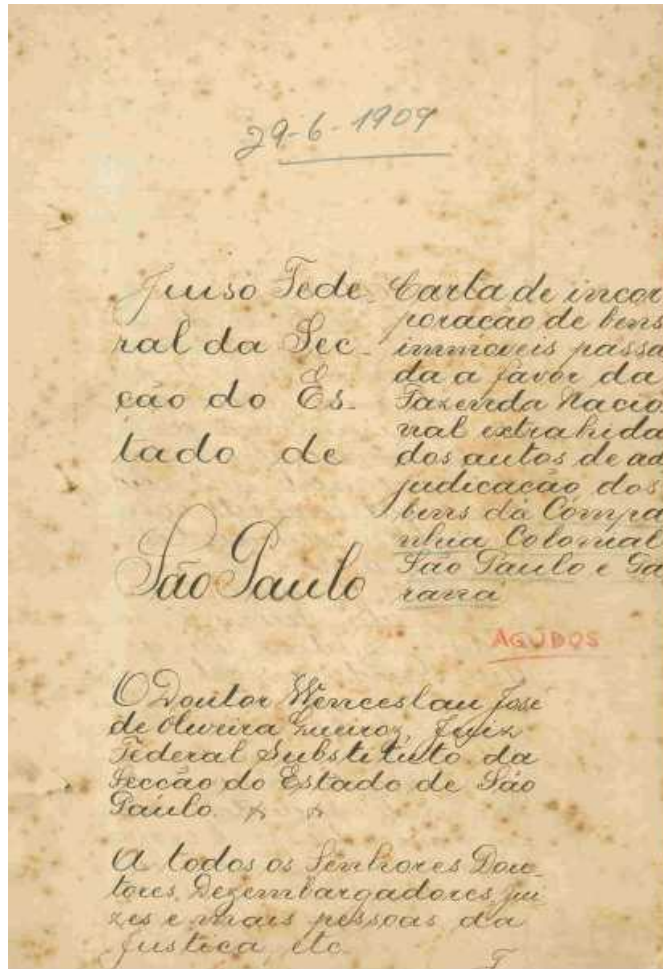 29-6-1909
Juiso Fede-
ral da Sec-
ção do Es-
tado de
São Paulo
Carta de incor
poração de bens
immoveis passa
da a favor da
Fazenda Nacio
nal extrahida
dos autos de ad
judicação dos
bens da Compa
nhia Colonial
São Paulo e Pa
raná
AGUDOS
O Doutor Wenceslau José
de Oliveira Queiroz, Juiz
Federal Substituto da
Secção do Estado de São
Paulo. x x
A todos os Senhores Dou-
tores, Dezembargadores, jui
zes e mais pessoas da
Justiça, etc.